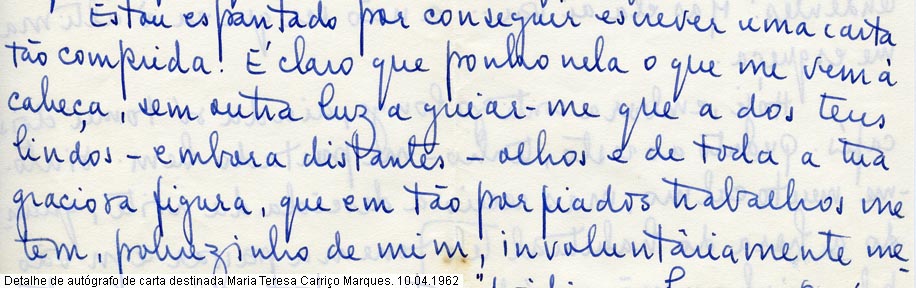 Estou espantado por conseguir escrever uma carta
tão comprida! É claro que ponho nela o que me vem à
cabeça, sem outra luz a guiar-me que a dos teus
lindos - embora distantes - olhos e de toda a tua
graciosa figura, que em tão porfiados trabalhos me
tem, pobrezinho de mim, involuntàriamente me-
Detalhe de autógrafo de carta destinada Maria Teresa Carriço Marques. 10.04.1962